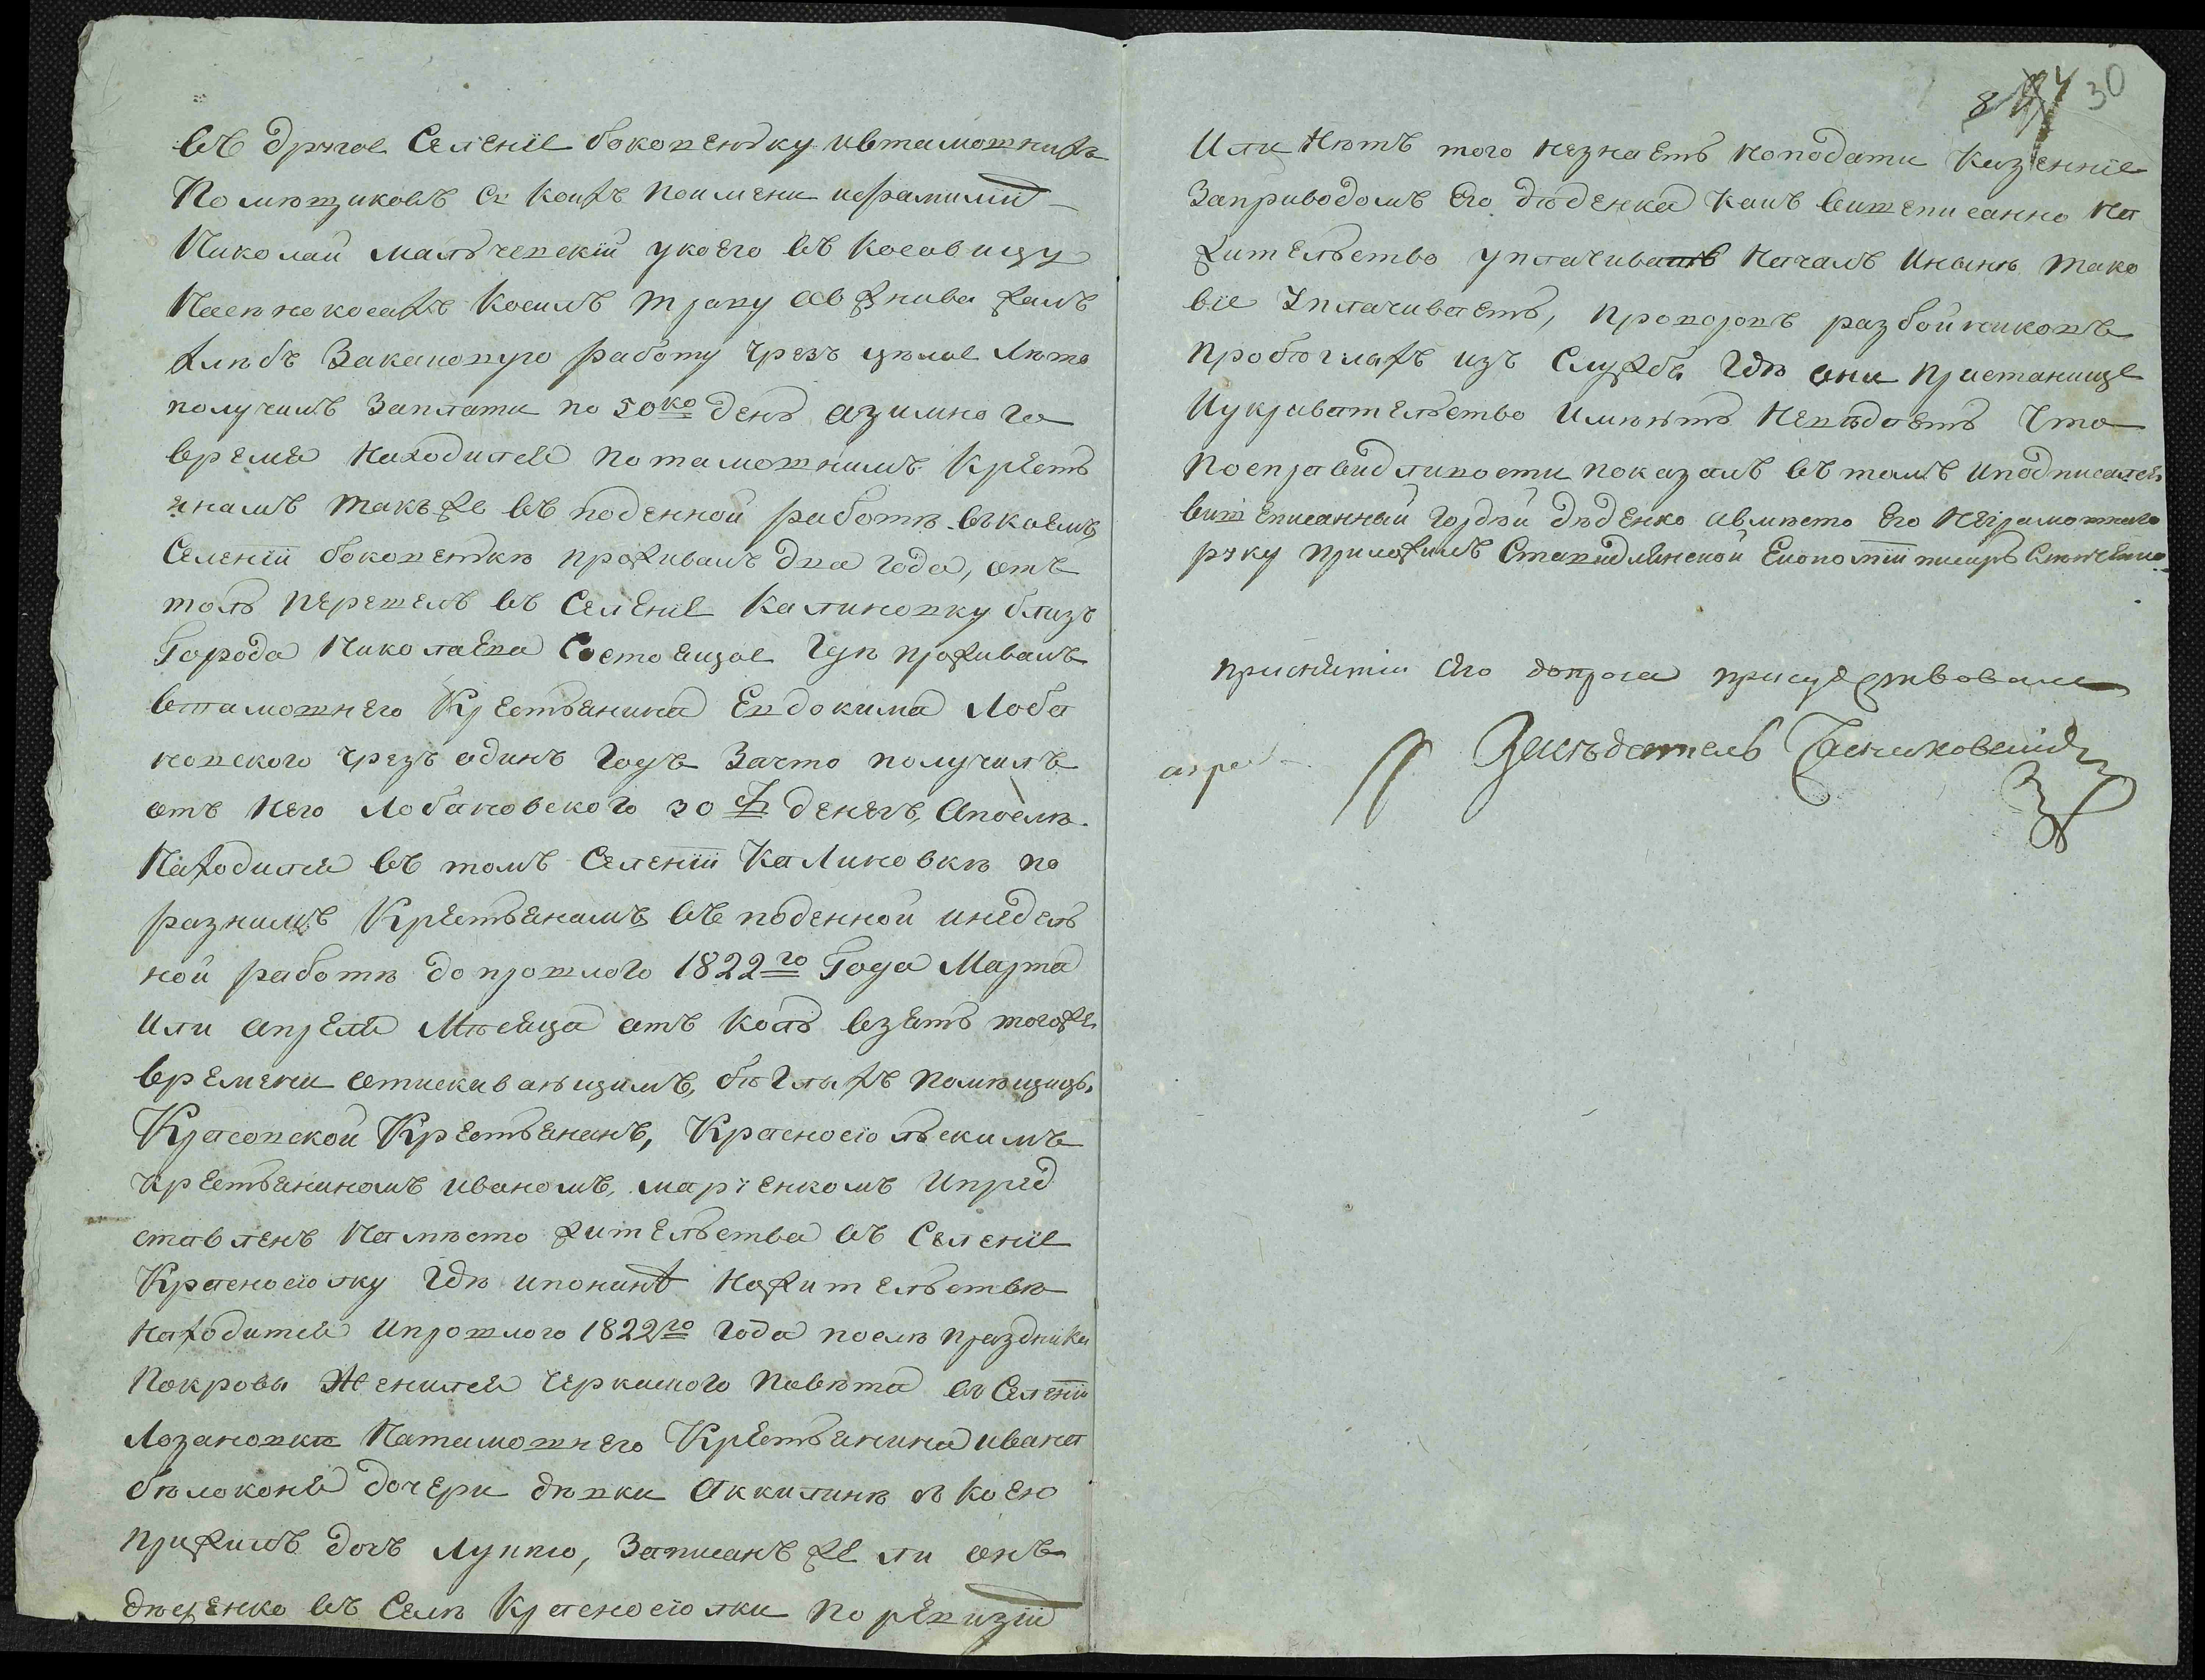 въ другое Селеніе боковенъку ивтаможнихъ
Помѣщиковъ съ коихъ поимени ифамиліи
Николай Мальчевскій укоего въ косовицу
Насѣнокосахъ косилъ траву ав жнива жалъ
хлѣбъ Закаковую работу чрезъ цѣлое лѣто
получилъ Заплати по 50 ко денъ азимнего
время находился потаможнимъ крест
янамъ такъже въ поденной работѣ въкоемъ
Селеніи боковенкѣ проживалъ два года, отъ
толь перешелъ въ Селеніе Калиновку близъ
Города Николаева Состоящое гдѣ проживалъ
втаможнего Крестъянина Евдокима Лоба
новского чрезъ одинъ годъ Зачто получилъ
отъ него Лобановского 30 р денегъ, Апослѣ
Находился въ томъ Селеніи Калиновкѣ по
разнимъ Крестъянамъ въ поденной инедель
ной работѣ до прошлого 1822 го Года Марта
Или апреля Мѣсяца отъ коль взятъ тогоже
времени отискивающимъ, бѣглихъ помѣщици
Красовской Крестъянъ, Красносіолъскимъ
крестъяниномъ иваномъ, марченкомъ Ипред
ставленъ Намѣсто жителъства въ Селеніе
Красносіолку гдѣ ипонинѣ нажителъствѣ
находится Ипрошлого 1822 го года послѣ праздника
Покрови Женился черкаского повѣта въ Селеніи
Лозановки Натаможнего Крестъянина ивана
бѣлоконя дочери дѣвки Аккилинѣ съ коею
прижилъ дочъ Лукію, Записанъ же ли онъ
дѣденко въ Селѣ Красносіолки по ревизіи
8 30
Или нѣтъ того незнаетъ ноподати Казенніе
Заприводомъ его дѣденка какъ вишеписанно на
жителъство уплачивать началъ Инынѣ тако
віе Уплачиваетъ, проворовъ разбойниковъ
пробѣглахъ изъ Службы гдѣ они пристанище
Иукрывателъство имѣютъ неведаетъ что
посправидливости показалъ въ томъ Иподписался
вишеписанный гордѣй дѣденко авмѣсто его неграмотного
руку приложилъ Ставидлянской Економіи писаръ
приснятіи сего допроса присудствовали
Засѣдатель